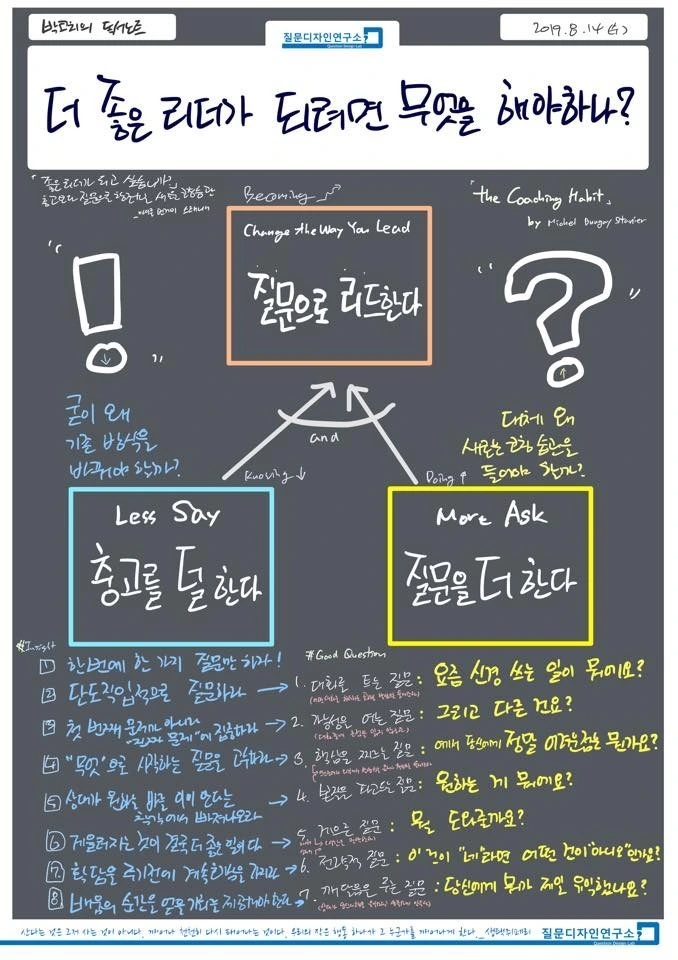 박코리의 독서노트
질문디자인연구소
Question Design Lab
2019. 8. 14 (수)
더 좋은 리더가 되려면 무엇을 해야하나?
「좋은 리더가 되고 싶습니까?」
충고보다 질문으로 새로운 코칭습관
Becoming
「the Coaching Habit」
by Michael Bungay Stanier
Change the Way You Lead
질문으로 리드한다
" ! "
" ? "
and
굳이 왜
기존 방식을
바꿔야 할까?
대체 왜
새로운 코칭 습관을
들여야 할까?
Knowing ↓
Doing ↑
Less Say
충고를 덜 한다
More Ask
질문을 더 한다
#Insight
1 한번에 한 가지 질문만 하라!
2 단도직입적으로 질문하라
3 첫 번째 문제가 아니라
"진짜 문제"에 집중하라
4 "무엇"으로 시작하는 질문을
5 상대가 원하는 바를 이미 안다는
착각에서 빠져나오라
6 게을러지는 것이 결국 더 좋은
7
8 배움의 순간을 얻을
#Good Question
1. 대화를 트는 질문 : 요즘 신경 쓰는 일이 뭐에요?
2. 가능성을 여는 질문 : 그리고 다른 건요?
3. 핵심을 찌르는 질문 : 에서 당신에게 정말 어려운점는 뭔가요?
4. 본질을 파고드는 질문 : 원하는 게 뭐에요?
5. 게으른 질문 : 뭘 도와줄까요?
6. 전략적 질문 : 이 것이 "네"라면 어떤 것이 "아니오"인가요?
7. 깨달음을 주는 질문 : 당신에게 뭐가 제일 유익했나요?
산다는 것은 그저 사는 것이 아니다. 깨어나 천천히 다시 태어나는 것이다. 우리의 작은 행동 하나가 그 누군가를 깨어나게 한다. _ 생텍쥐페리
질문디자인연구소
Question Design Lab